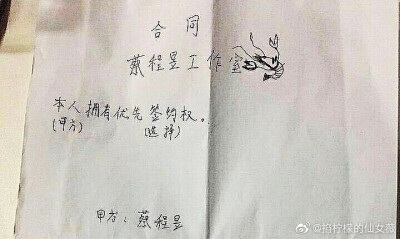 合同
蔡程昱工作室
本人拥有优先签约权。
(甲方) (选择)
甲方：蔡程昱
@招柠檬的仙女薇